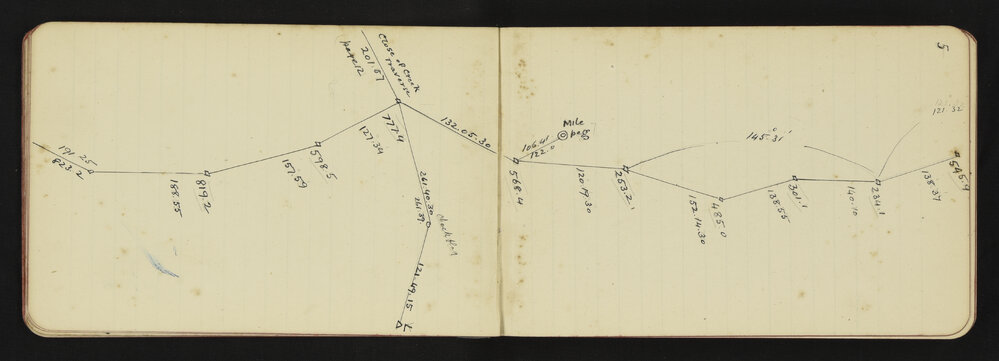 5
Close of Creek
Traverse
201.57
page 12
191.25
823.2
188.55
819.2
157.59
598.5
127.34
777.4
132.05.30
261.40.30
261.39
121.49.15
L
Mile
peg
106.41
722.0
568.4
120.19.30
253.2
145°31'
152.14.30
485.0
138.55
301.1
140.10
234.1
121.32
138.37
545.9